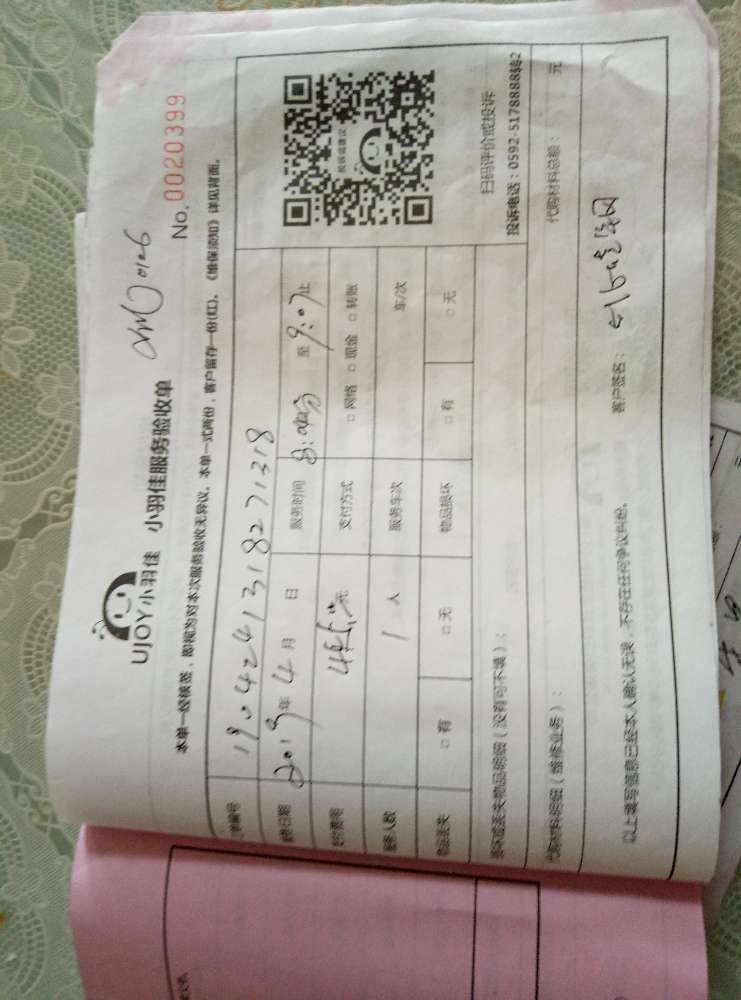 UJOY小羽佳 小羽佳服务验收单
No. 0020399
本单一经核签，即视为对本次服务验收无异议。本单一式两份，客户留存一份(红)。《维保须知》详见背面。
订单编号 190424131827 1318
服务日期 2019年4月 日 服务时间 至 9:07止
服务费用 元 支付方式 □ 网络 □ 现金 □ 转账
服务人数 1 人 服务车次 车/次
物品丢失 □ 有 □ 无 物品损坏 □ 有 □ 无
投诉或建议
扫码评价或投诉
投诉电话：0592-5178888转2
损坏或丢失物品明细（没有可不填）：
代购材料明细（维修业务）：
代购材料总额： 元
以上填写信息已经本人确认无误，不存在任何争议纠纷。 客户签名：